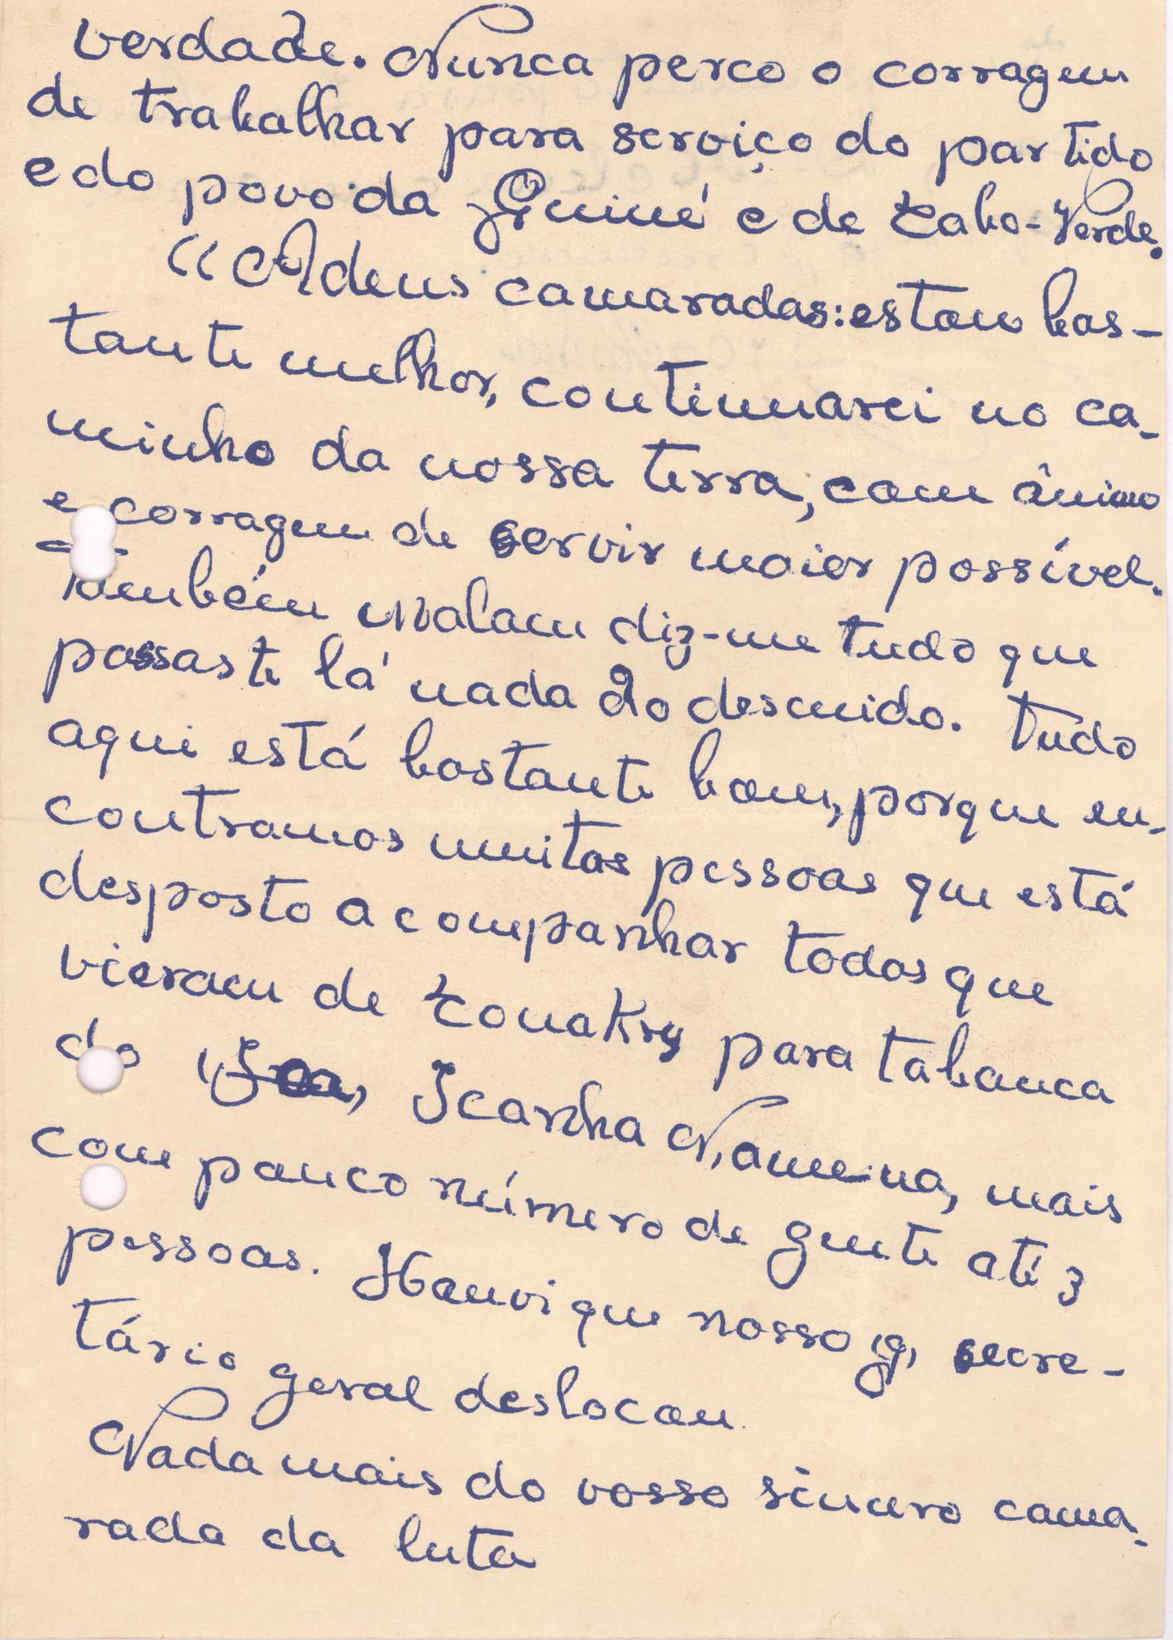 verdade. Nunca perco o corragem
de trabalhar para serviço do partido
e do povo da Guiné e de Cabo-Verde.
"Adeus camaradas: estou bas-
tante melhor, continuarei no ca-
minho da nossa terra, com ânimo
e corragem de servir maior possível.
Também Malam diz-me tudo que
passaste lá nada do descuido. Tudo
aqui está bastante bom, porque en-
contramos muitas pessoas que está
desposto acompanhar todos que
vieram de Conakry para tabanca
do Icanha Namena, mais
com pouco número de gente até 3
pessoas. Houvi que nosso secre-
tário geral deslocou
Nada mais do vosso sincero cama-
rada da luta